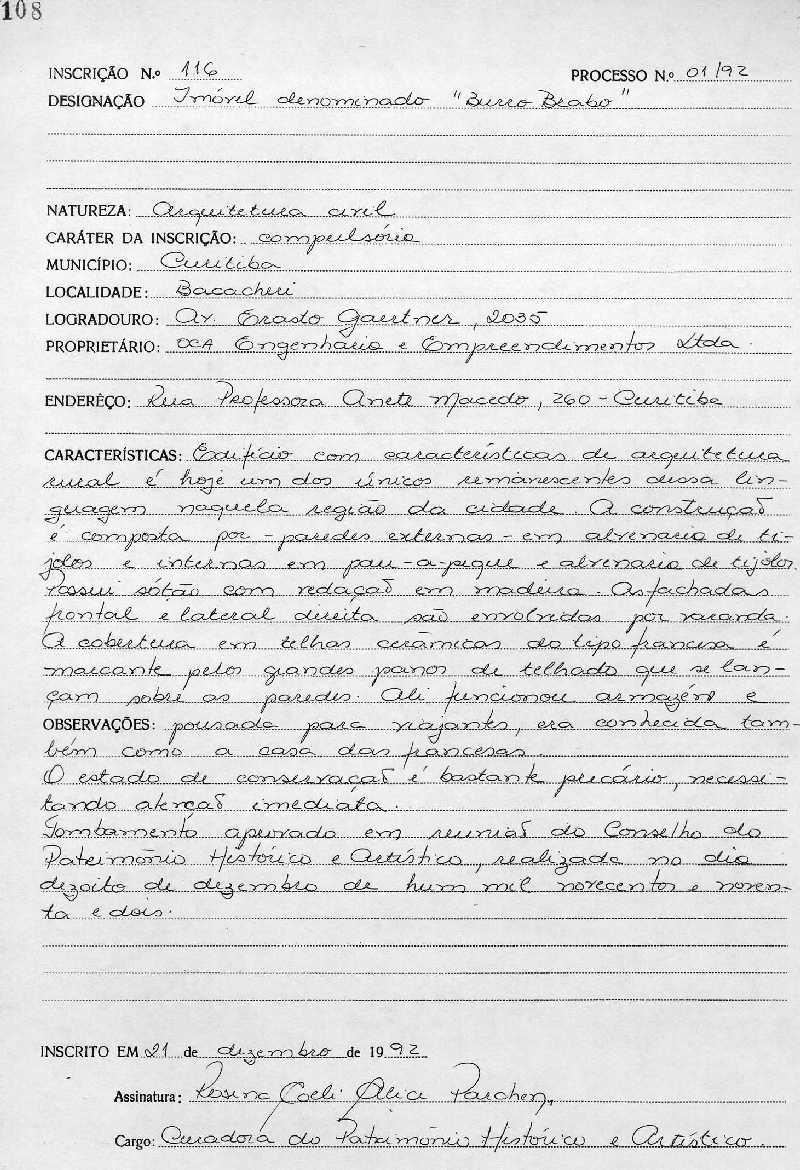 108
INSCRIÇÃO N.º 116 PROCESSO N.º 01/92
DESIGNAÇÃO Imóvel denominado "Burro Brabo"
NATUREZA: Arquitetura civil
CARÁTER DA INSCRIÇÃO: compulsório
MUNICÍPIO: Curitiba
LOCALIDADE: Bacacheri
LOGRADOURO: Av. Erasto Gaertner, 2035
PROPRIETÁRIO: OCA Engenharia e Empreendimentos Ltda.
ENDERÊÇO: Rua Professora Anete Macedo, 260 - Curitiba
CARACTERÍSTICAS: Edifício com características de arquitetura
rural é hoje um dos únicos remanescentes dessa lin-
guagem naquela região da cidade. A construção
é composta por - paredes externas - em alvenaria de ti-
jolos e internas em pau-a-pique e alvenaria de tijolos.
Possui sótão com vedação em madeira. As fachadas
frontal e lateral direita são envolvidas por varanda.
A cobertura em telhas cerâmicas do tipo francesa é
marcante pelos grandes panos de telhado que se lan-
çam sobre as paredes. Ali funcionou armazém e
OBSERVAÇÕES: pousada para viajantes, era conhecida tam-
bém como a casa das francesas.
O estado de conservação é bastante precário, necessi-
tando atenção imediata.
Tombamento aprovado em reunião do Conselho do
Patrimônio Histórico e Artístico, realizada no dia
dezoito de dezembro de hum mil novecentos e noven-
ta e dois.
INSCRITO EM 21 de dezembro de 1992
Assinatura: Rosina Coeli Alice Parchen
Cargo: Curadora do Patrimônio Histórico e Artístico.